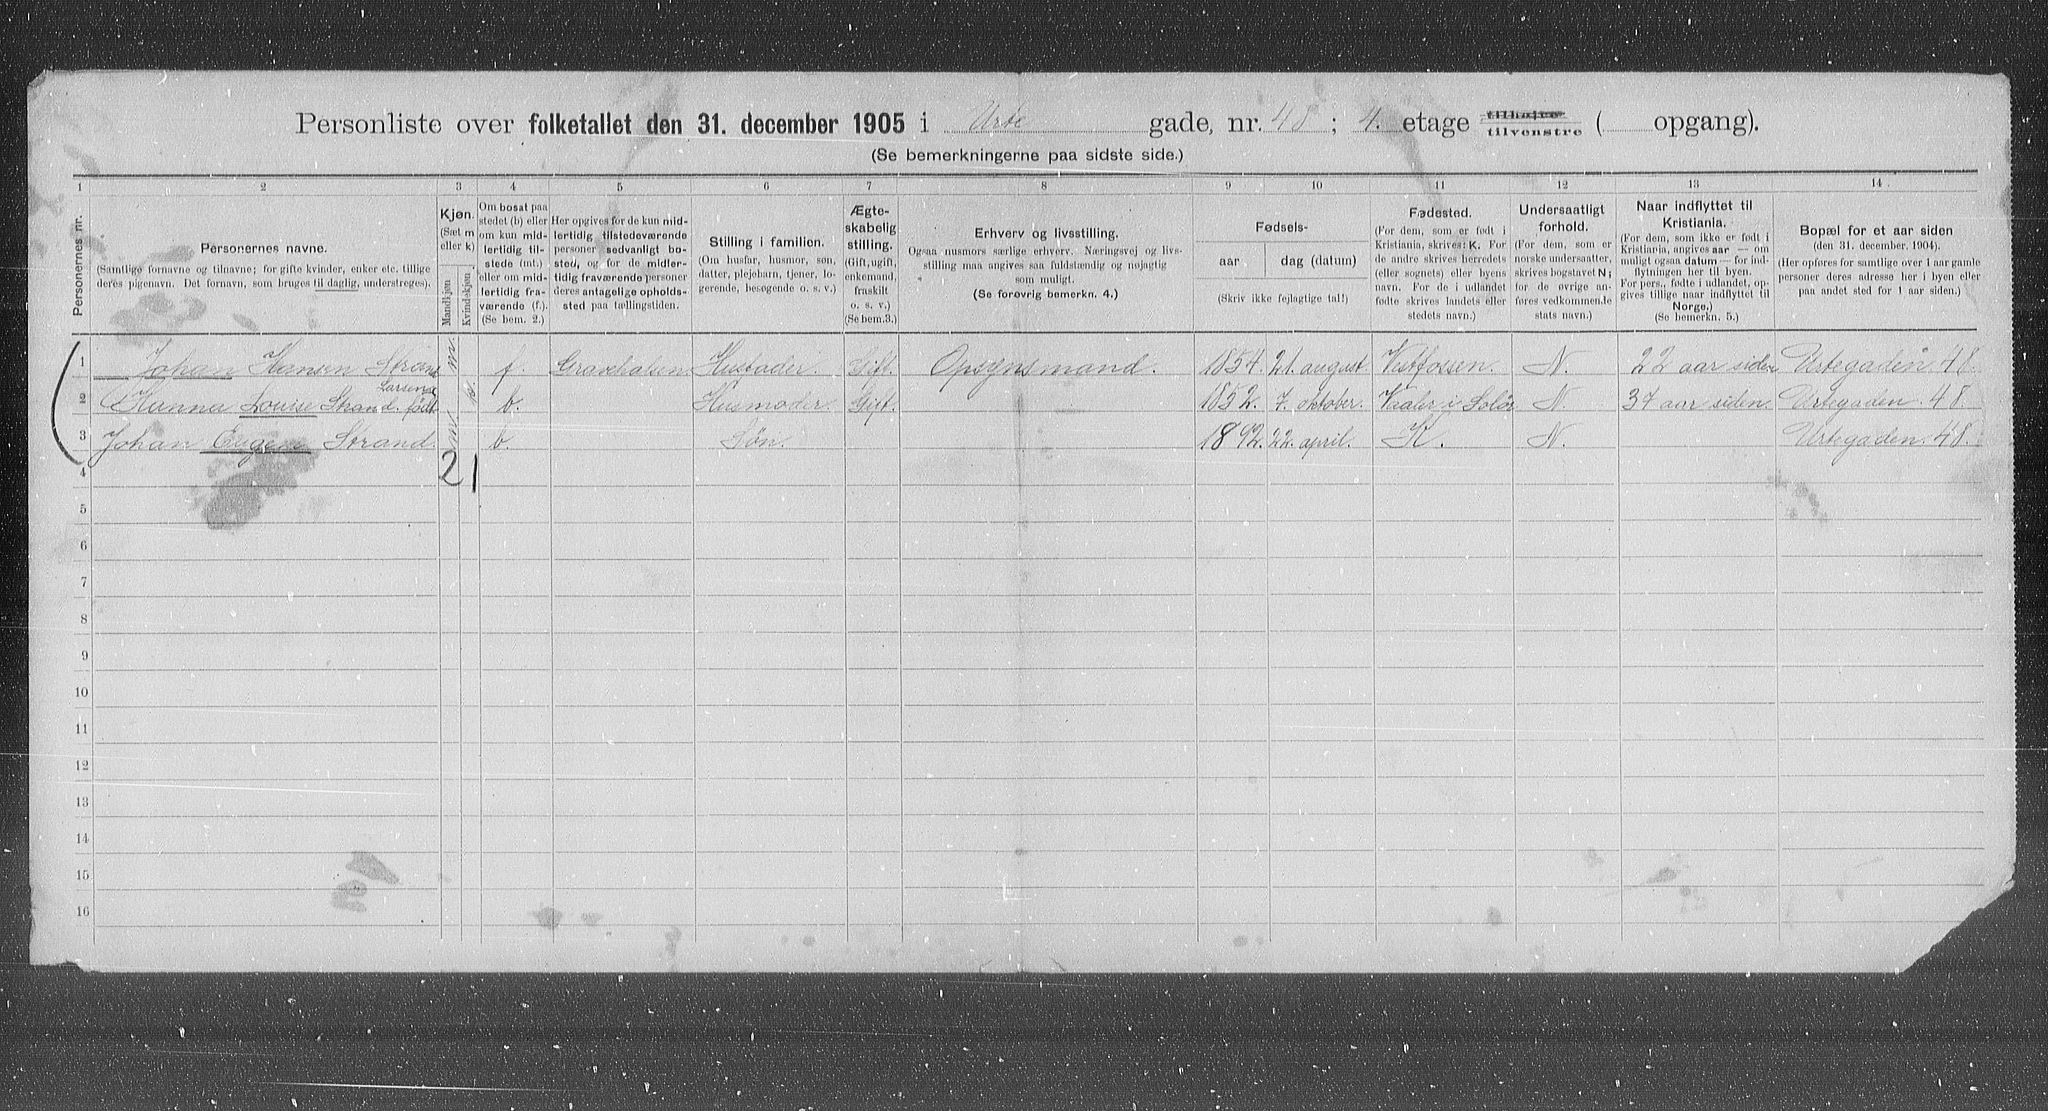 Personliste over folketallet den 31. december 1905 i Urte gade, nr. 48; 4. etage tilhøire tilvenstre ( opgang).
(Se bemerkningerne paa sidste side.)
1 2 3 4 5 6 7 8 9 10 11 12 13 14
Personernes nr.
Personernes navne.
(Samtlige fornavne og tilnavne; for gifte kvinder, enker etc. tillige
deres pigenavn. Det fornavn, som bruges til daglig, understreges).
Kjøn.
(Sæt m
eller k)
Mandkjøn
Kvindekjøn.
Om bosat paa
stedet (b) eller
om kun mid-
lertidig til-
stede (mt.)
eller om mid-
lertidig fra-
værende (f.)
(Se bem. 2.)
Her opgives for de kun mid-
lertidig tilstedeværende
personer sedvanligt bo-
sted, og for de midler-
tidig fraværende personer
deres antagelige opholds-
sted paa tællingstiden.
Stilling i familien.
(Om husfar, husmor, søn,
datter, plejebarn, tjener, lo-
gerende, besøgende o. s. v.)
Ægte-
skabelig
stilling.
(Gift, ugift,
enkemand,
fraskilt
o. s. v.)
(Se bem.3.)
Erhverv og livsstilling.
Ogsaa husmors særlige erhverv. Næringsvej og livs-
stilling maa angives saa fuldstændig og nøjagtig
som muligt.
(Se forøvrig bemerkn. 4.)
Fødsels-
aar
dag (datum)
(Skriv ikke fejlagtige tal!)
Fødested.
(For dem, som er født i
Kristiania, skrives: K. For
de andre skrives herredets
(eller sognets) eller byens
navn. For de i udlandet
fødte skrives landets eller
stedets navn.)
Undersaatligt
forhold.
(For dem, som er
norske undersaatter,
skrives bogstavet N;
for de øvrige an-
føres vedkommende
stats navn.)
Naar indflyttet til
Kristiania.
(For dem, som ikke er født i
Kristiania, angives aar — om
muligt ogsaa datum — for ind-
flytningen her til byen.
For pers., fødte i udlandet, op-
gives tillige naar indflyttet til
Norge.)
(Se bemerkn. 5.)
Bopæl for et aar siden
(den 31. december. 1904).
(Her opføres for samtlige over 1 aar gamle
personer deres adresse her i byen eller
paa andet sted for 1 aar siden.)
1 Johan Hansen Strand m. f. Gravhalsen. Husfader. Gift. Opsynsmand. 1854. 21. august Vestfossen. N. 22 aar siden Urtegaden 48.
Larsen
2 Hanna Louise Strand. født k. b. Husmoder. Gift. 1852. 7. oktober. Vaaler i Solør N. 37 aar siden. Urtegaden. 48.
3 Johan Eugen Strand. m b Søn. 1892. 22. april. K. N. Urtegaden. 48.
2 1
4
5
6
7
8
9
10
11
12
13
14
15
16